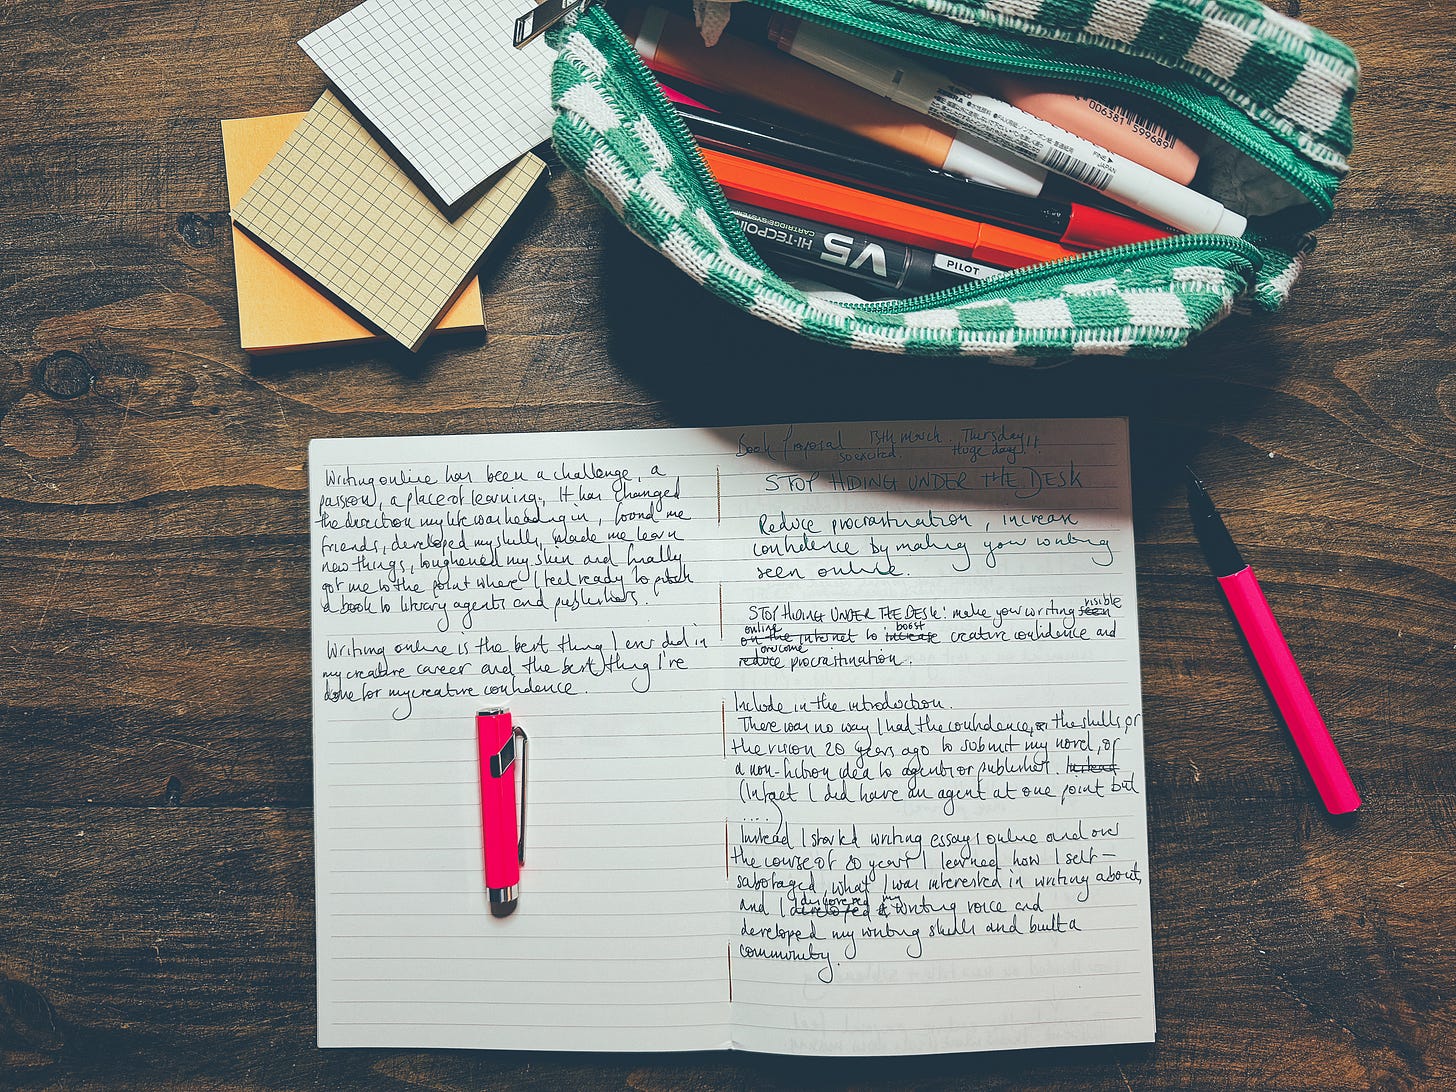 006381 599689
FINE
JAPAN
HI-TECPOINT
CARTRIDGE SYSTEM
V5
PILOT
Writing online has been a challenge, a
passion, a place of learning. It has changed
the direction my life was heading in, found me
friends, developed my skills, made me learn
new things, toughened my skin and finally
got me to the point where I feel ready to pitch
a book to literary agents and publishers.
Writing online is the best thing I ever did in
my creative career and the best thing I've
done for my creative confidence.
Book Proposal 13th March. Thursday
so excited. Huge day!!
STOP HIDING UNDER THE DESK
Reduce procrastination, increase
confidence by making your writing
seen online.
STOP HIDING UNDER THE DESK: make your writing seen visible
online
on the internet to increase boost creative confidence and
overcome
reduce procrastination.
Include in the introduction.
There was no way I had the confidence, or the skills, or
the vision 20 years ago to submit my novel, or
a non-fiction idea to agents or publisher. Instead
(In fact I did have an agent at one point but
....)
Instead I started writing essays online and over
the course of 20 years I learned how I self-
sabotaged, what I was interested in writing about,
and I developed a discovered my writing voice and
developed my writing skills and built a
community.